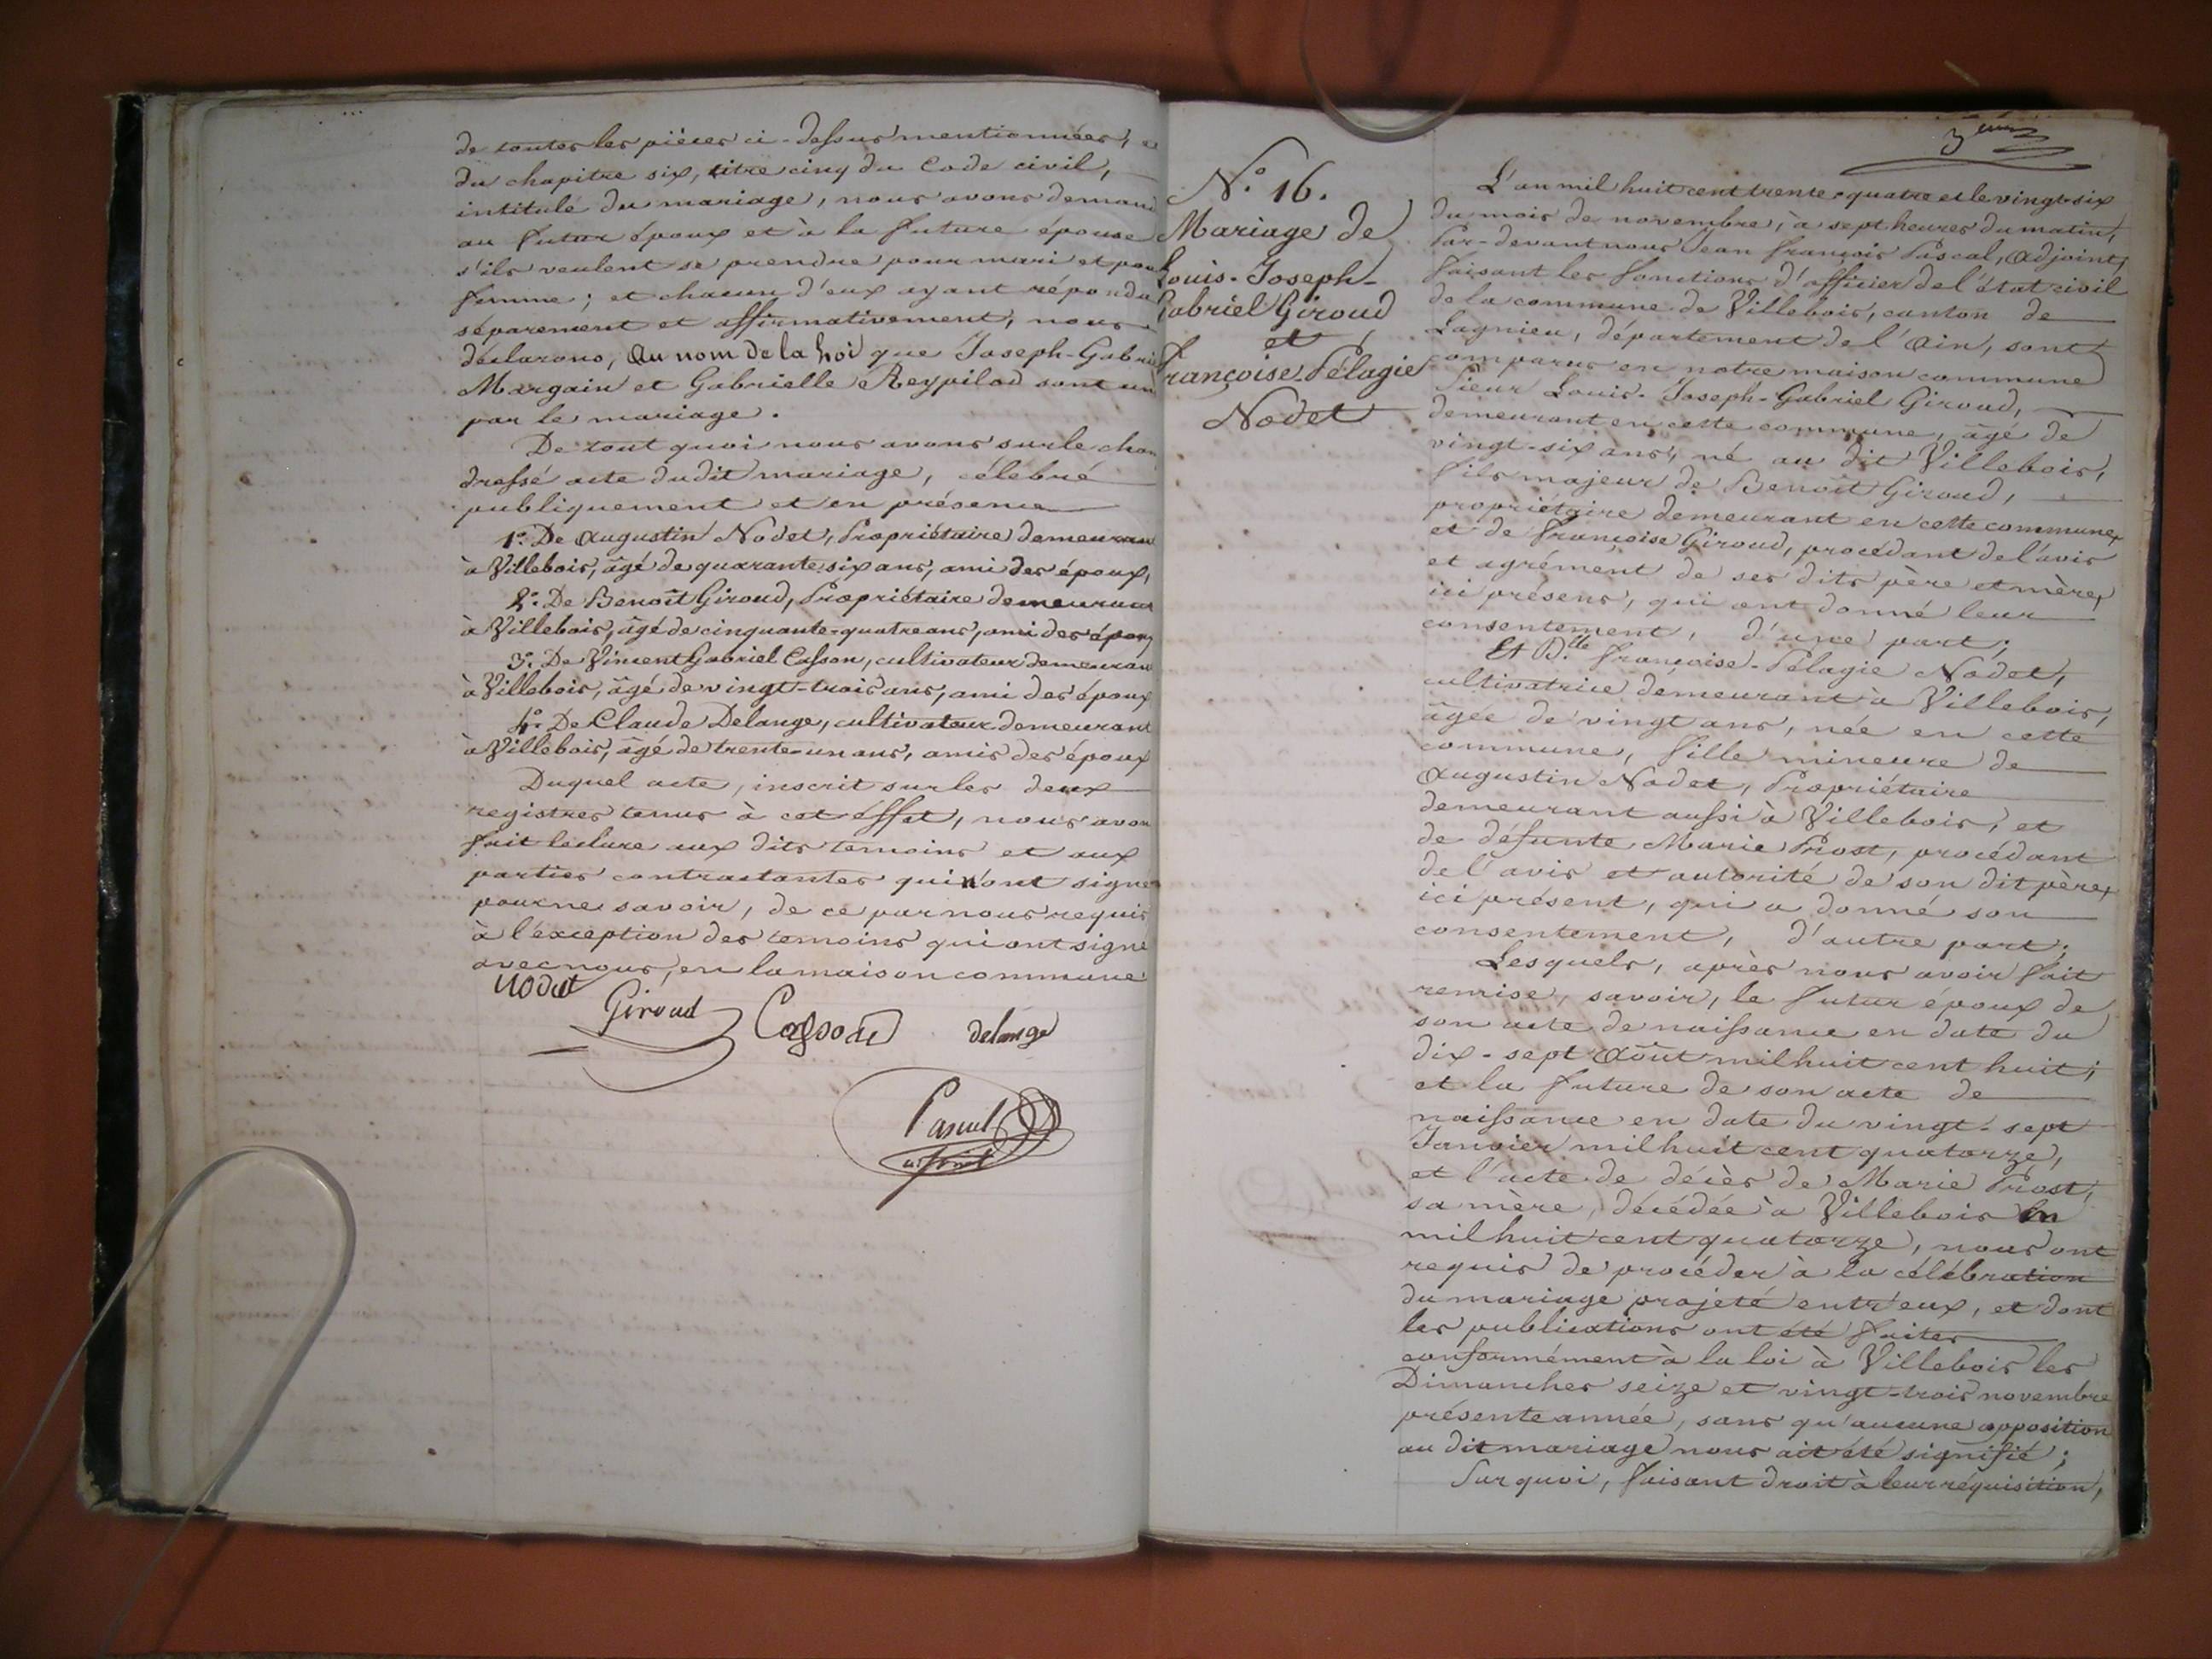 de toutes les pièces ci-dessus mentionnées,
du chapitre six, titre cinq du Code civil,
intitulé du mariage, nous avons demand
au futur époux et à la future épouse
s'ils veulent se prendre pour mari et pour
femme; et chacun d'eux ayant répondu
séparement et affirmativement, nous
déclarons, au nom de la Loi que Joseph-Gabri
Margain et Gabrielle Reypilod sont un
par le mariage.
De tout quoi nous avons sur le cham
dressé acte dudit mariage, célébré
publiquement et en présence
1° De Augustin Nodet, Propriétaire demeuran
à Villebois, âgé de quarante six ans, ami des époux,
2° De Benoît Giroud, Propriétaire demeurant
à Villebois, âgé de cinquante-quatre ans, ami des époux
3° De Vincent Gabriel Casson, cultivateur demeuran
à Villebois, âgé de vingt-trois ans, ami des époux
4° De Claude Delange, cultivateur demeurant
à Villebois, âgé de trente-un ans, amis des époux
Duquel acte, inscrit sur les deux
registres tenus à cet éffet, nous avon
fait lecture aux dits temoins et aux
parties contractantes qui n'ont signé
pour ne savoir, de ce par nous requis
à l'éxception des temoins qui ont signé
avec nous, en la maison commune
Nodet
Giroud Casson delange
Pascal
adjoint
3eme
N.° 16.
Mariage de
Louis-Joseph-
Gabriel Giroud
et
Françoise-Pélagie
Nodet
L'an mil huit cent trente-quatre et le vingt-six
du mois de novembre, à sept heures du matin,
Par-devant nous Jean françois Pascal, Adjoint,
faisant les fonctions d'officier de l'état civil
de la commune de Villebois, canton de
Lagnieu, département de l'Ain, sont
comparus en notre maison commune
Sieur Louis-Joseph-Gabriel Giroud,
demeurant en cette commune, âgé de
vingt-six ans, né au dit Villebois,
fils majeur de Benoît Giroud,
propriétaire demeurant en cette commune,
et de françoise Giroud, procédant de l'avis
et agrément de ses dits père et mère,
ici présens, qui ont donné leur
consentement, d'une part;
Et D.lle françoise-Pélagie Nodet,
cultivatrice demeurant à Villebois,
âgée de vingt ans, née en cette
commune, fille mineure de
Augustin Nodet, Propriétaire
demeurant aussi à Villebois, et
de défunte Marie Prost, procédant
de l'avis et autorité de son dit père,
ici présent, qui a donné son
consentement, d'autre part;
Lesquels, après nous avoir fait
remise, savoir, le futur époux de
son acte de naissance en date du
dix-sept Août mil huit cent huit;
et la future de son acte de
naissance en date du vingt-sept
Janvier mil huit cent quatorze,
et l'acte de décès de Marie Prost,
sa mère, décédée à Villebois en
mil huit cent quatorze, nous ont
requis de procéder à la célébration
du mariage projeté entr'eux, et dont
les publications ont été faites
conformément à la loi à Villebois les
Dimanches seize et vingt-trois novembre
présente année, sans qu'aucune opposition
au dit mariage nous ait été signifié;
Sur quoi, faisant droit à leur réquisition,